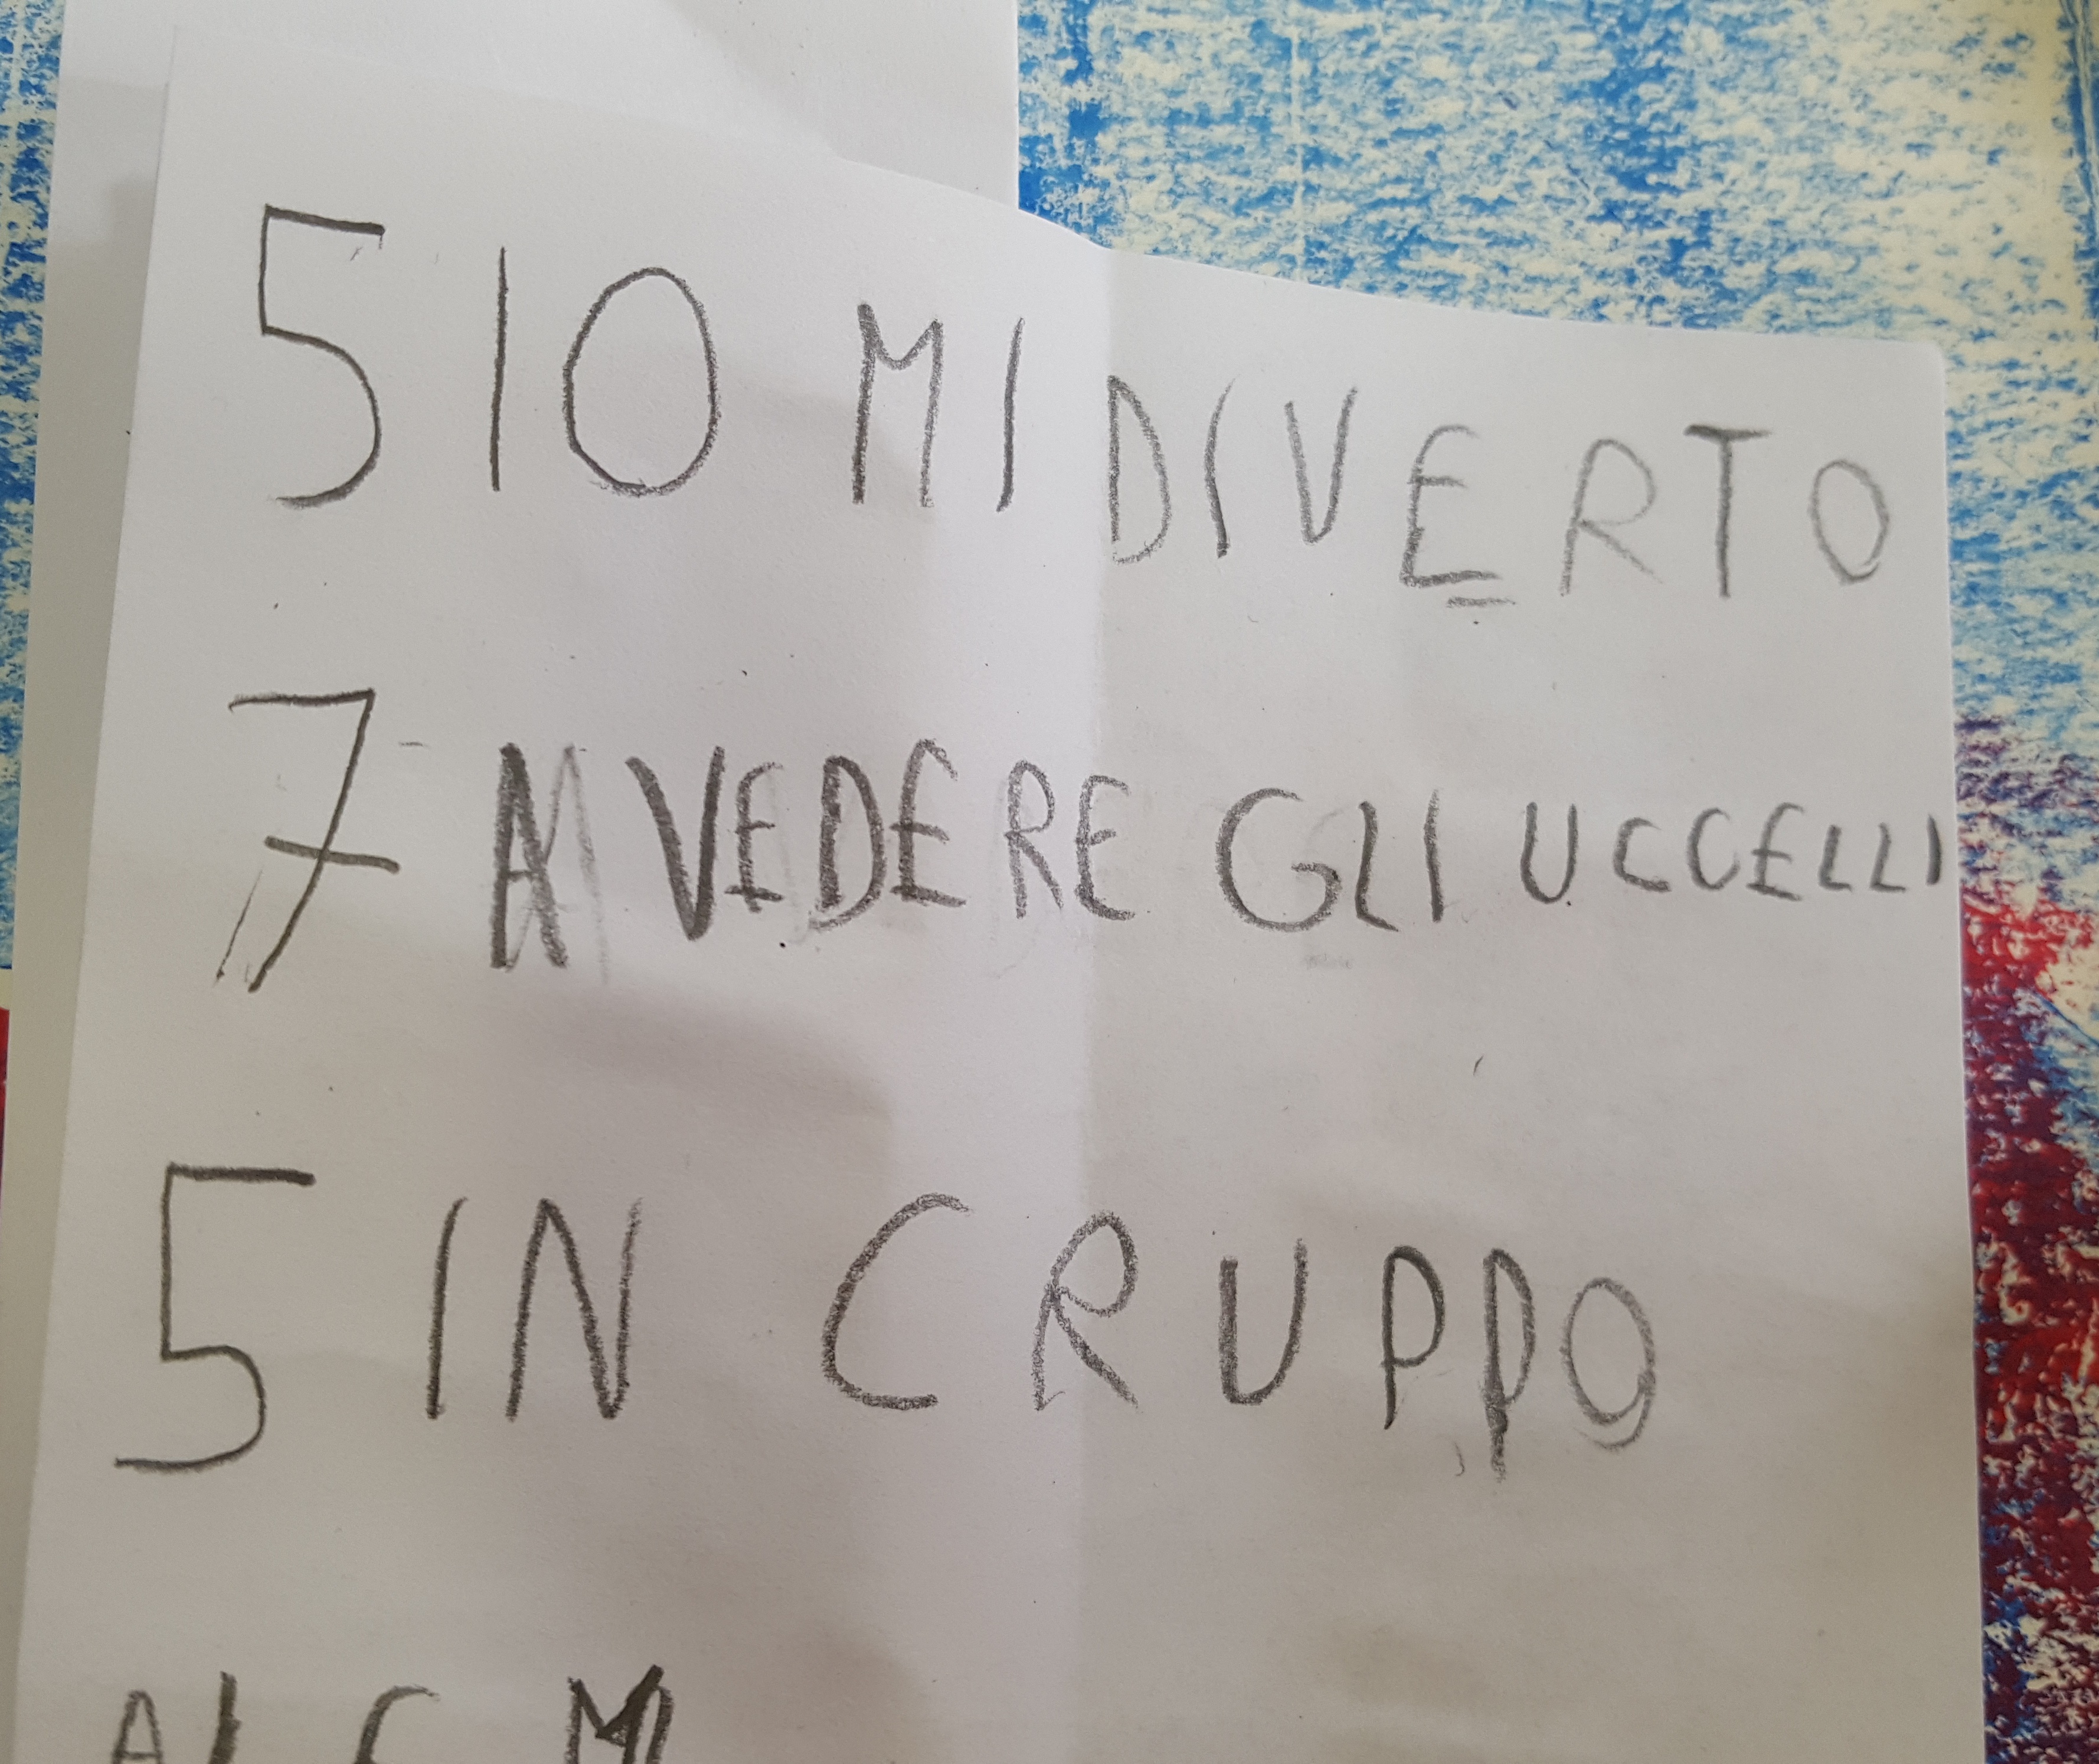 5 IO MI DIVERTO
7 A VEDERE GLI UCCELLI
5 IN CRUPPO